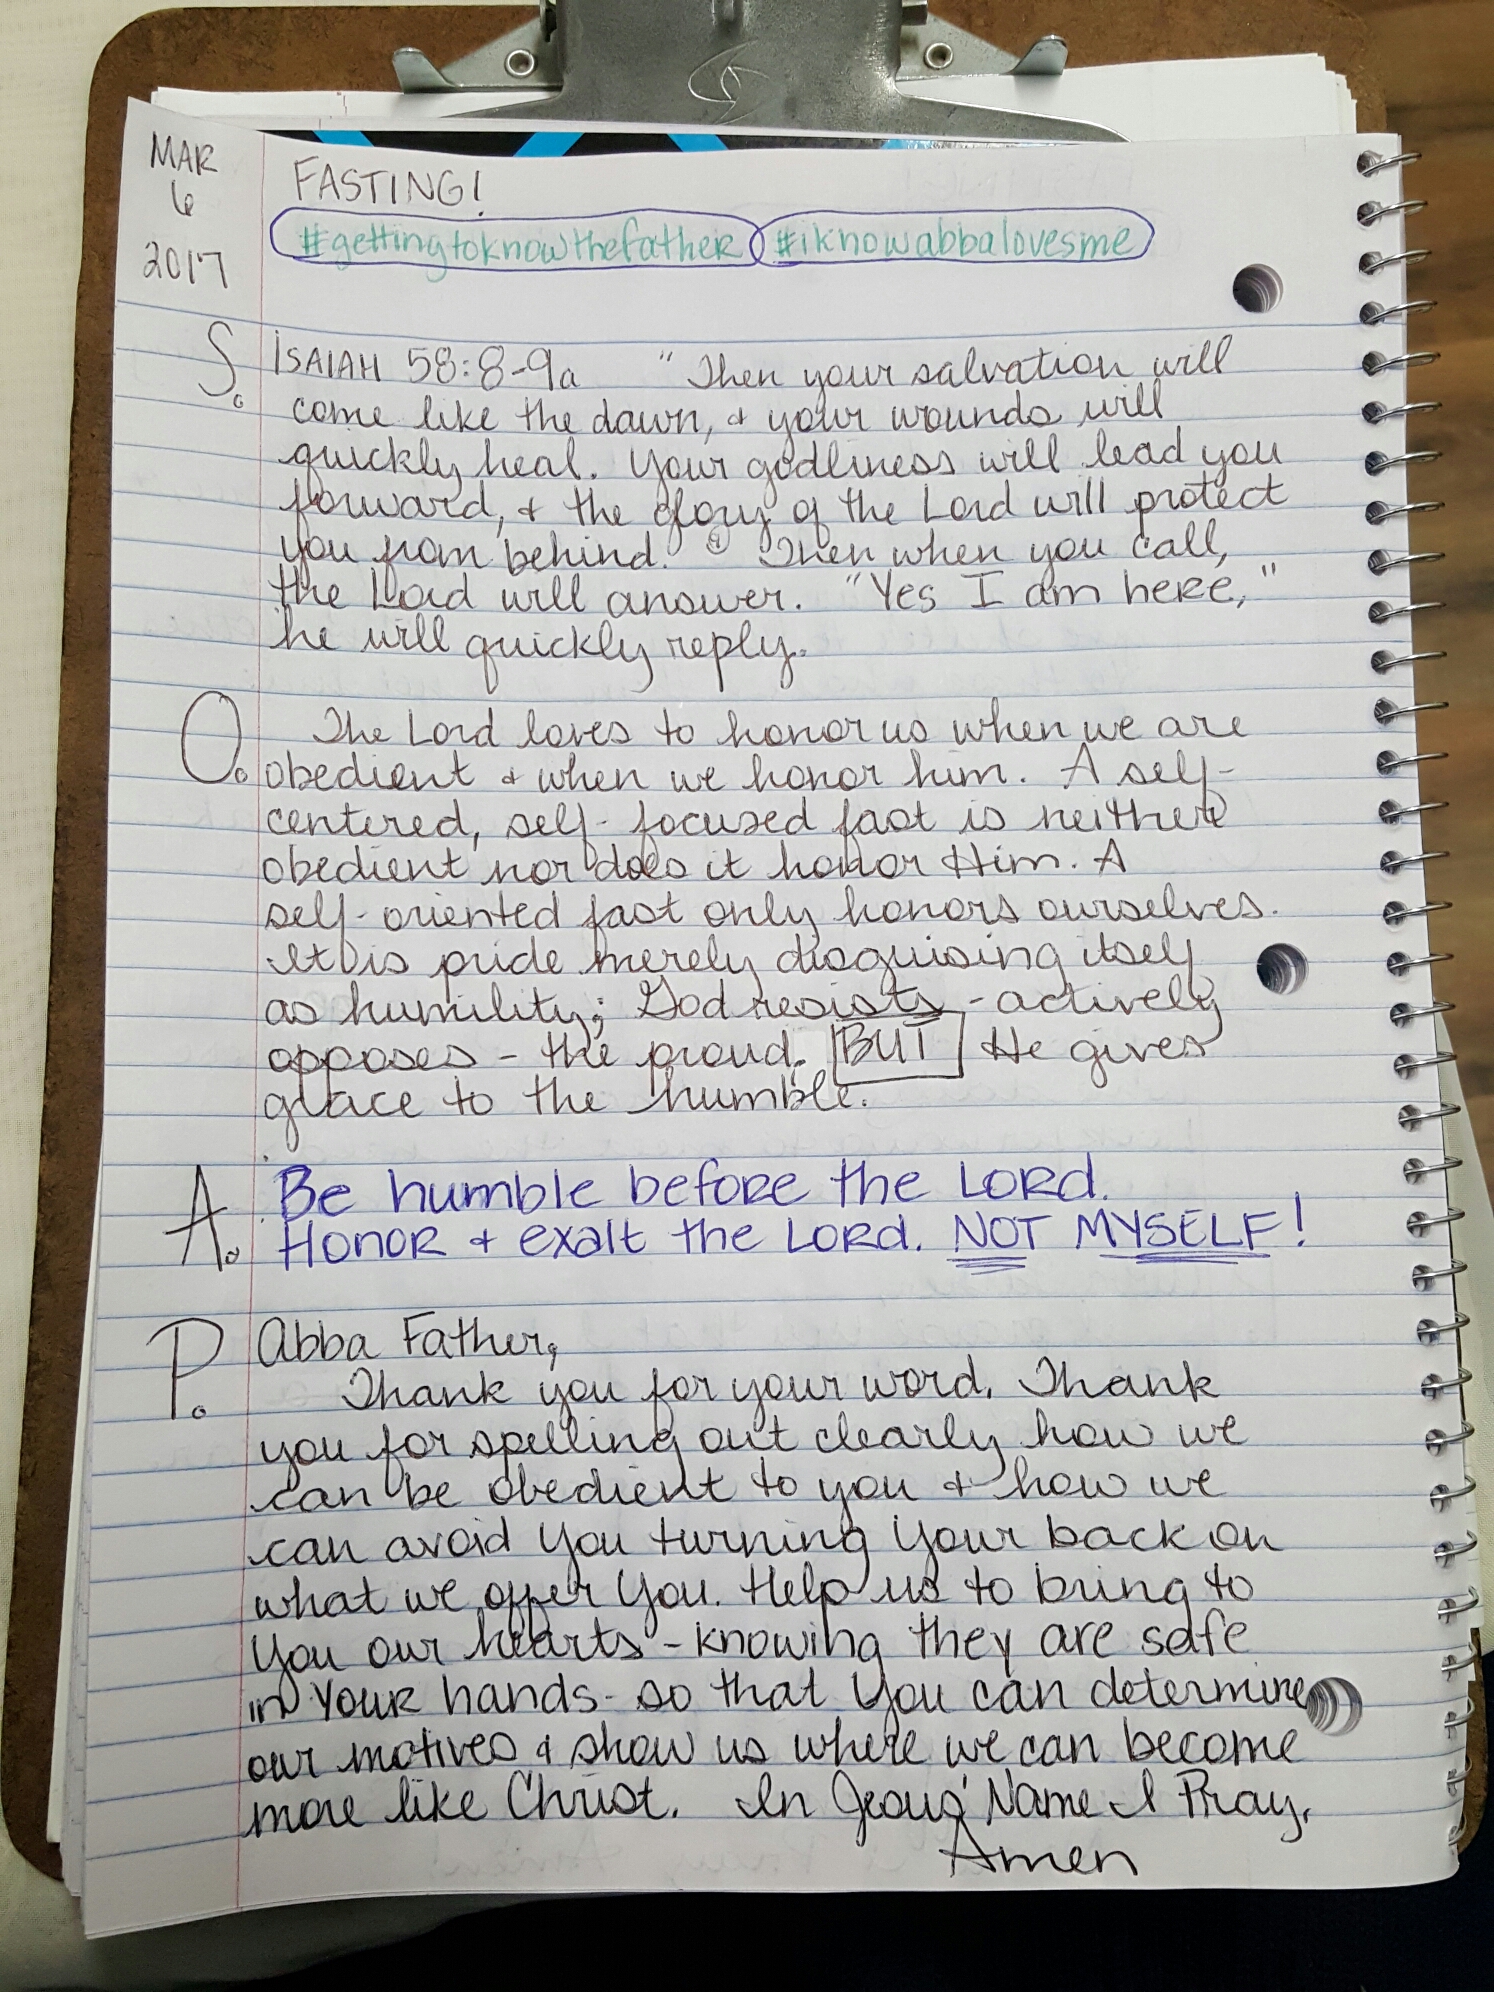 MAR
6
2017
FASTING!
#gettingtoknowthefather #iknowabbalovesme
S. ISAIAH 58:8-9a "Then your salvation will
come like the dawn, & your wounds will
quickly heal. Your godliness will lead you
forward, & the glory of the Lord will protect
you from behind. 9 Then when you call,
the Lord will answer. "Yes I am here,"
he will quickly reply.
O. The Lord loves to honor us when we are
obedient & when we honor him. A self-
centered, self-focused fast is neither
obedient nor does it honor Him. A
self-oriented fast only honors ourselves.
It is pride merely disguising itself
as humility; God resists - actively
opposes - the proud. BUT He gives
grace to the humble.
A. Be humble before the LORD.
HONOR & exalt the LORD. NOT MYSELF!
P. Abba Father,
Thank you for your word. Thank
you for spelling out clearly how we
can be obedient to you & how we
can avoid You turning Your back on
what we offer You. Help us to bring to
You our hearts - knowing they are safe
in Your hands - so that You can determine
our motives & show us where we can become
more like Christ. In Jesus' Name I Pray,
Amen